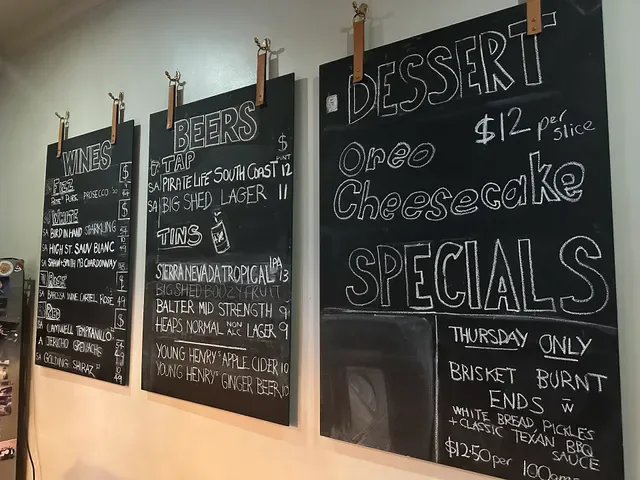 WINES
$
FIZZ
PROSECCO
$
WHITE
SA BIRD IN HAND SPARKLING
SA HIGH ST. SAUV BLANC
SA SHAW + SMITH M3 CHARDONNAY
ROSÉ
SA BAROSSA WINE CARTEL ROSE
RED
$
SA TEMPRANILLO
JERICHO GRENACHE
SA GOLDING SHIRAZ
BEERS
$
TAP PINT
SA PIRATE LIFE SOUTH COAST 12
SA BIG SHED LAGER 11
TINS
SIERRA NEVADA TROPICAL IPA 13
BIG SHED BOOZY FRUIT
BALTER MID STRENGTH 9
HEAPS NORMAL NON ALC LAGER 9
YOUNG HENRY'S APPLE CIDER 10
YOUNG HENRY'S GINGER BEER 10
DESSERT
$12 per slice
Oreo
Cheesecake
SPECIALS
THURSDAY ONLY
BRISKET BURNT
ENDS W
WHITE BREAD, PICKLES
+ CLASSIC TEXAN BBQ
SAUCE
$12.50 per 100gms